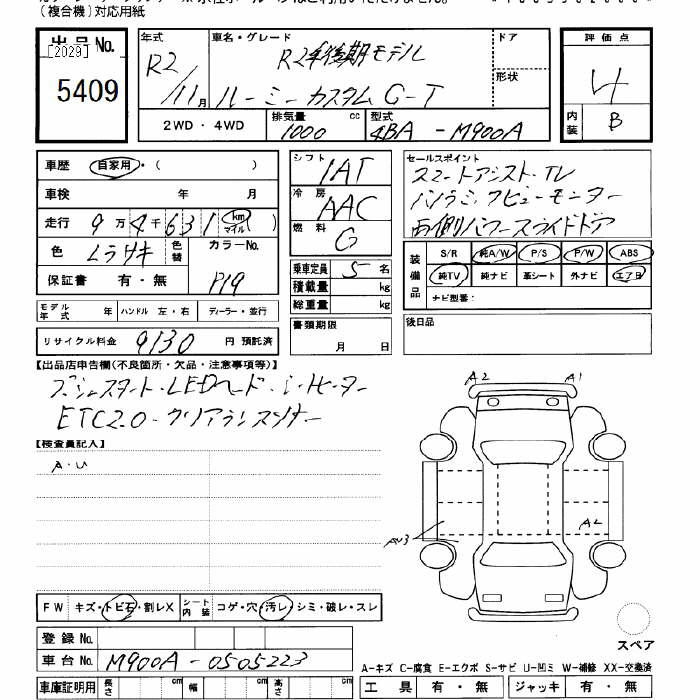 (複合機)対応用紙
出品No.
[2029]
5409
年式 車名・グレード ドア
R2 R2年後期モデル
形状
11月 ルーミーカスタム G-T
2WD・4WD 排気量 cc 型式
1000 4BA - M900A
評価点
4
内装 B
車歴 自家用・( )
車検 年 月
走行 9万4千631 km マイル
色 ムラサキ 色替 カラーNo.
保証書 有・無 P19
モデル年式 年 ハンドル 左・右 ディーラー・並行
リサイクル料金 9130 円 預託済
シフト IAT
冷房 AAC
燃料 G
乗車定員 5 名
積載量 kg
総重量 kg
書類期限
月 日
セールスポイント
スマートアシスト・TV
パノラミックビューモニター
両側パワースライドドア
装備品 S/R 純A/W P/S P/W ABS
純TV 純ナビ 革シート 外ナビ エアB
ナビ型番:
後日品
【出品店申告欄(不良箇所・欠品・注意事項等)】
プッシュスタート・LEDヘッド・シートヒーター
ETC2.0・クリアランスソナー
【検査員記入】
A・U
A2 A1
AU3 A2
FW キズ・トビ石・割レX シート内装 コゲ・穴・汚レ・シミ・破レ・スレ
登録No.
車台No. M900A - 0505223
車庫証明用 長さ cm 幅 cm 高さ cm
スペア
A-キズ C-腐食 E-エクボ S-サビ U-凹ミ W-補修 XX-交換済
工具 有・無 ジャッキ 有・無